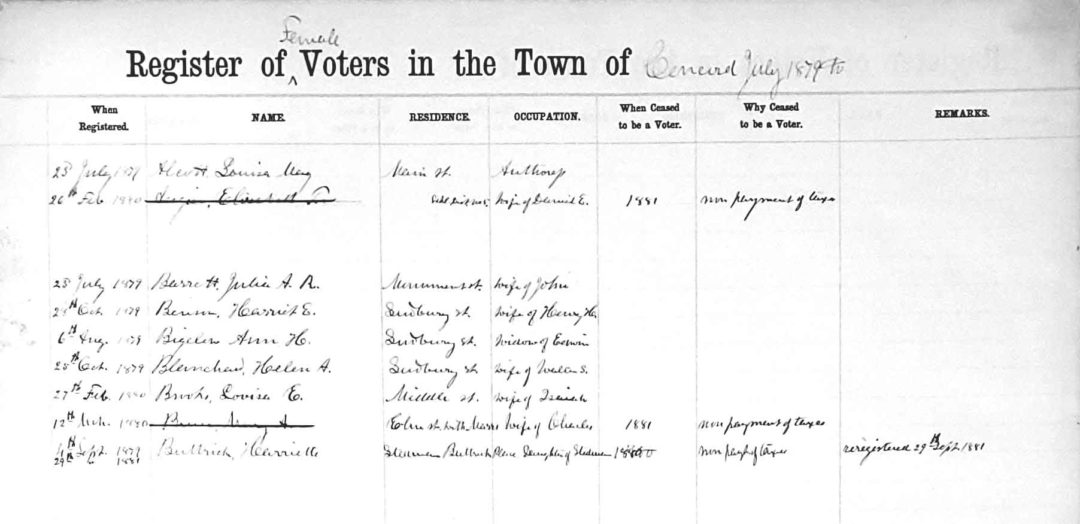 Female
Register of ‸ Voters in the Town of Concord July 1879 to
When Registered. NAME. RESIDENCE. OCCUPATION. When Ceased to be a Voter. Why Ceased to be a Voter. REMARKS.
July 1879 Alcott Louisa May Main st. Author
26th Feb 1880 Wife of Daniel E. 1881 non payment of taxes
July 1879 Barrett, Julia A. R. Monument st. Wife of John
Oct. 1879 Benson, Harriet E. Sudbury st Wife of Henry H.
6th Aug. 1879 Bigelow Ann H. Sudbury st. Widow of Edwin
Oct. 1879 Blanchard, Helen A. Sudbury st Wife of
27th Feb. 1880 Brooks, Louisa E. Middle st. Wife of Isaiah
12th Mch. 1880 Wife of Charles 1881 non payment of taxes
4th Sept. 1879 Buttrick, Harriette Stedman Buttrick Place Daughter of Stedman non payt of taxes reregistered 29th Sept. 1881
29th " 1881